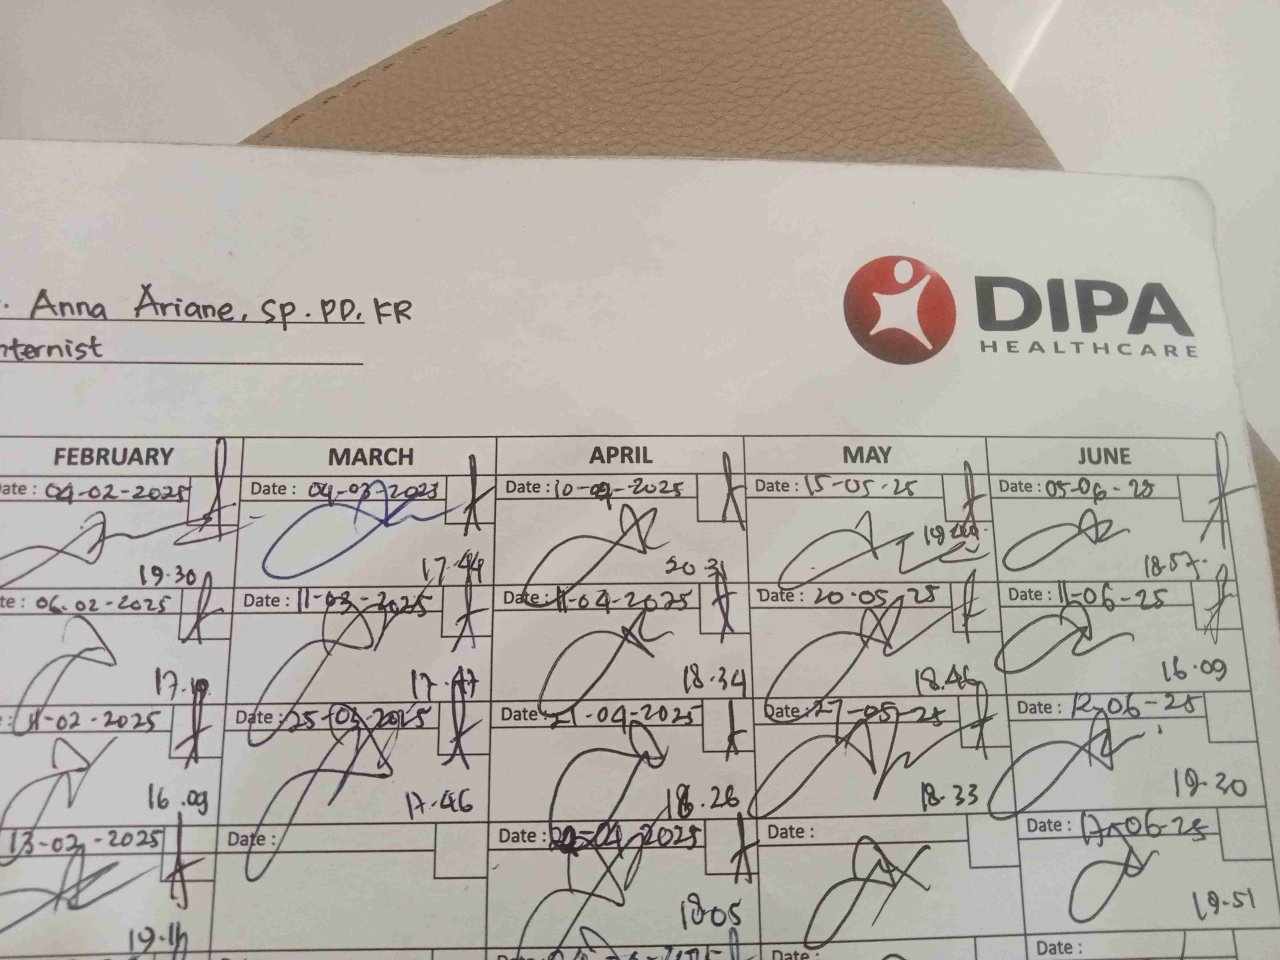 . Anna Ariane, Sp. PD, KR
nternist
DIPA
HEALTHCARE
FEBRUARY MARCH APRIL MAY JUNE
ate : 04-02-2025 Date : 04-03-2023 Date : 10-04-2025 Date : 15-05-25 Date : 05-06-25
19.30 17.44 20.31 18.57
te : 06.02-2025 Date : 11-03-2025 Date : 11-04-2025 Date : 20-05-25 Date : 11-06-25
17.47 18.34 18.46 16.09
: 11-02-2025 Date : 25-03-2025 Date : 21-04-2025 Date : 27-05-25 Date : 12-06-25
16.09 17.46 18.26 18.33 19.30
13-02-2025 Date : Date : 24-04-2025 Date : Date : 17-06-25
18.05 19.51
Date : Date : Date :